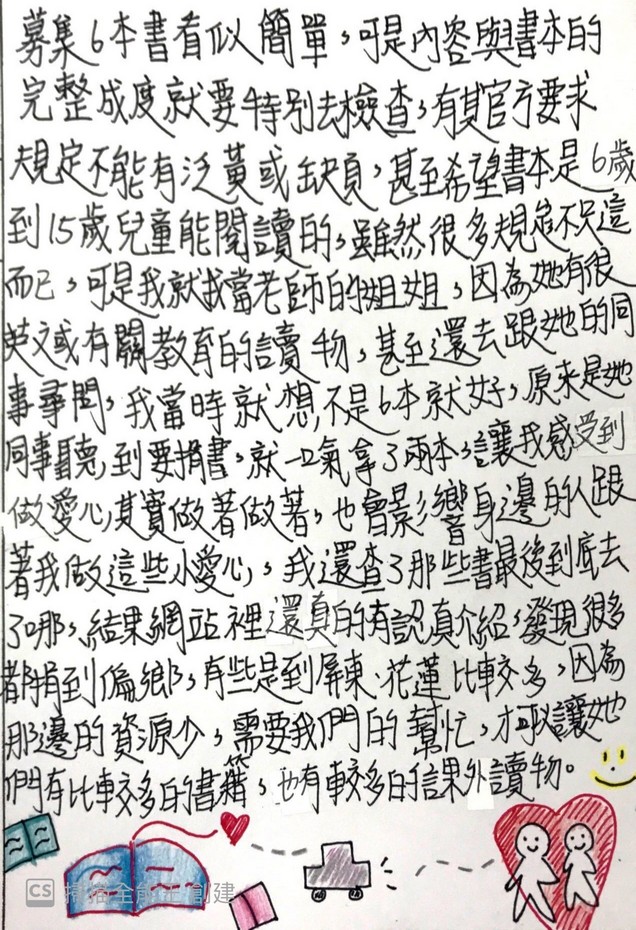 募集6本書看似簡單，可是內容與書本的
完整成度就要特別去檢查，有其官方要求
規定不能有泛黃或缺頁，甚至希望書本是6歲
到15歲兒童能閱讀的，雖然很多規定不只這
而已，可是我就找當老師的姐姐，因為她有很
英文或有關教育的讀物，甚至還去跟她的同
事尋問，我當時就想，不是6本就好，原來是她
同事聽，到要捐書，就一口氣拿了兩本，讓我感受到
做愛心，其實做著做著，也會影響身邊的人跟
著我做這些小愛心，我還查了那些書最後到底去
了哪，結果網站裡還真的有認真介紹，發現很多
都捐到偏鄉，有些是到屏東、花蓮比較多，因為
那邊的資源少，需要我們的幫忙，才可以讓她
們有比較多的書籍，也有較多的課外讀物。
CS 掃描全能王 創建